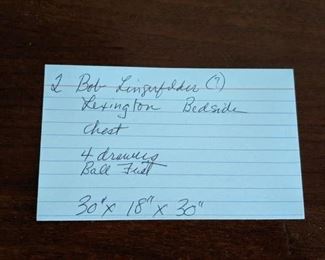 2 Bob Lingerfelder (?)
Lexington Bedside
Chest
4 drawers
Ball Feet
30" x 18" x 30"